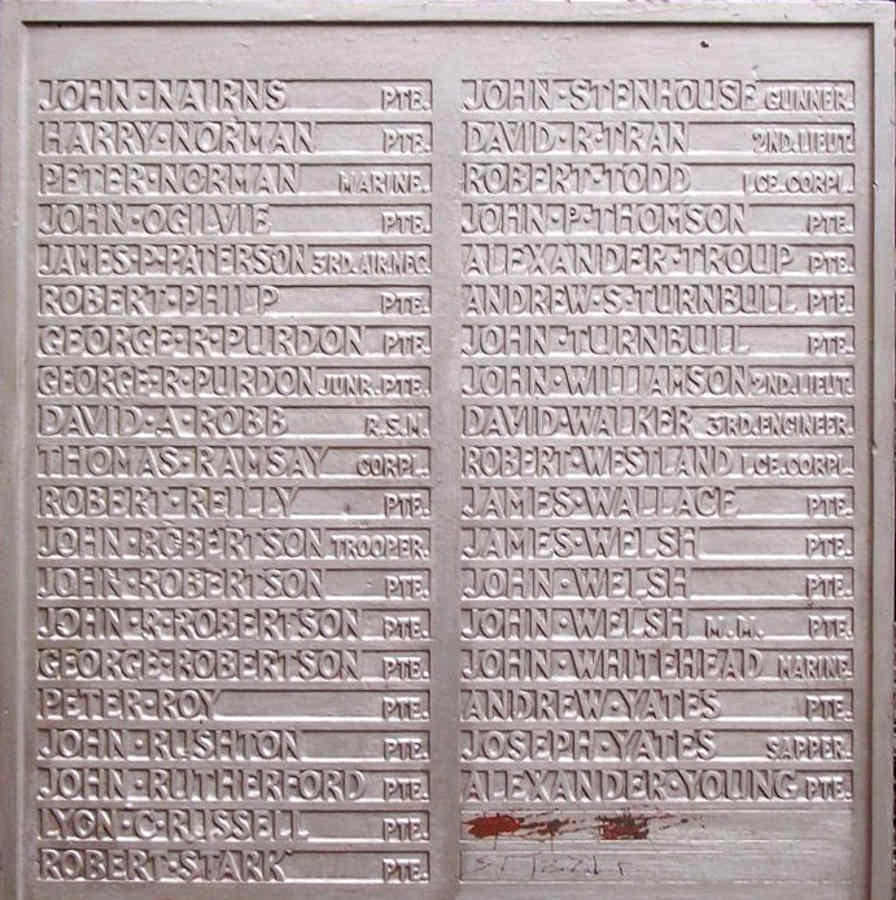 JOHN·NAIRNS PTE.
HARRY·NORMAN PTE.
PETER·NORMAN MARINE.
JOHN·OGILVIE PTE.
JAMES·P·PATERSON 3RD.AIR.MEC.
ROBERT·PHILP PTE.
GEORGE·R·PURDON PTE.
GEORGE·R·PURDON JUNR.PTE.
DAVID·A·ROBB R.S.M.
THOMAS·RAMSAY CORPL.
ROBERT·REILLY PTE.
JOHN·ROBERTSON TROOPER.
JOHN·ROBERTSON PTE.
JOHN·R·ROBERTSON PTE.
GEORGE·ROBERTSON PTE.
PETER·ROY PTE.
JOHN·RUSHTON PTE.
JOHN·RUTHERFORD PTE.
LYON·C·RUSSELL PTE.
ROBERT·STARK PTE.
JOHN·STENHOUSE GUNNER.
DAVID·R·TRAN 2ND.LIEUT.
ROBERT·TODD LCE.CORPL.
JOHN·P·THOMSON PTE.
ALEXANDER·TROUP PTE.
ANDREW·S·TURNBULL PTE.
JOHN·TURNBULL PTE.
JOHN·WILLIAMSON 2ND.LIEUT.
DAVID·WALKER 3RD.ENGINEER.
ROBERT·WESTLAND LCE.CORPL.
JAMES·WALLACE PTE.
JAMES·WELSH PTE.
JOHN·WELSH PTE.
JOHN·WELSH M.M. PTE.
JOHN·WHITEHEAD MARINE.
ANDREW·YATES PTE.
JOSEPH·YATES SAPPER.
ALEXANDER·YOUNG PTE.